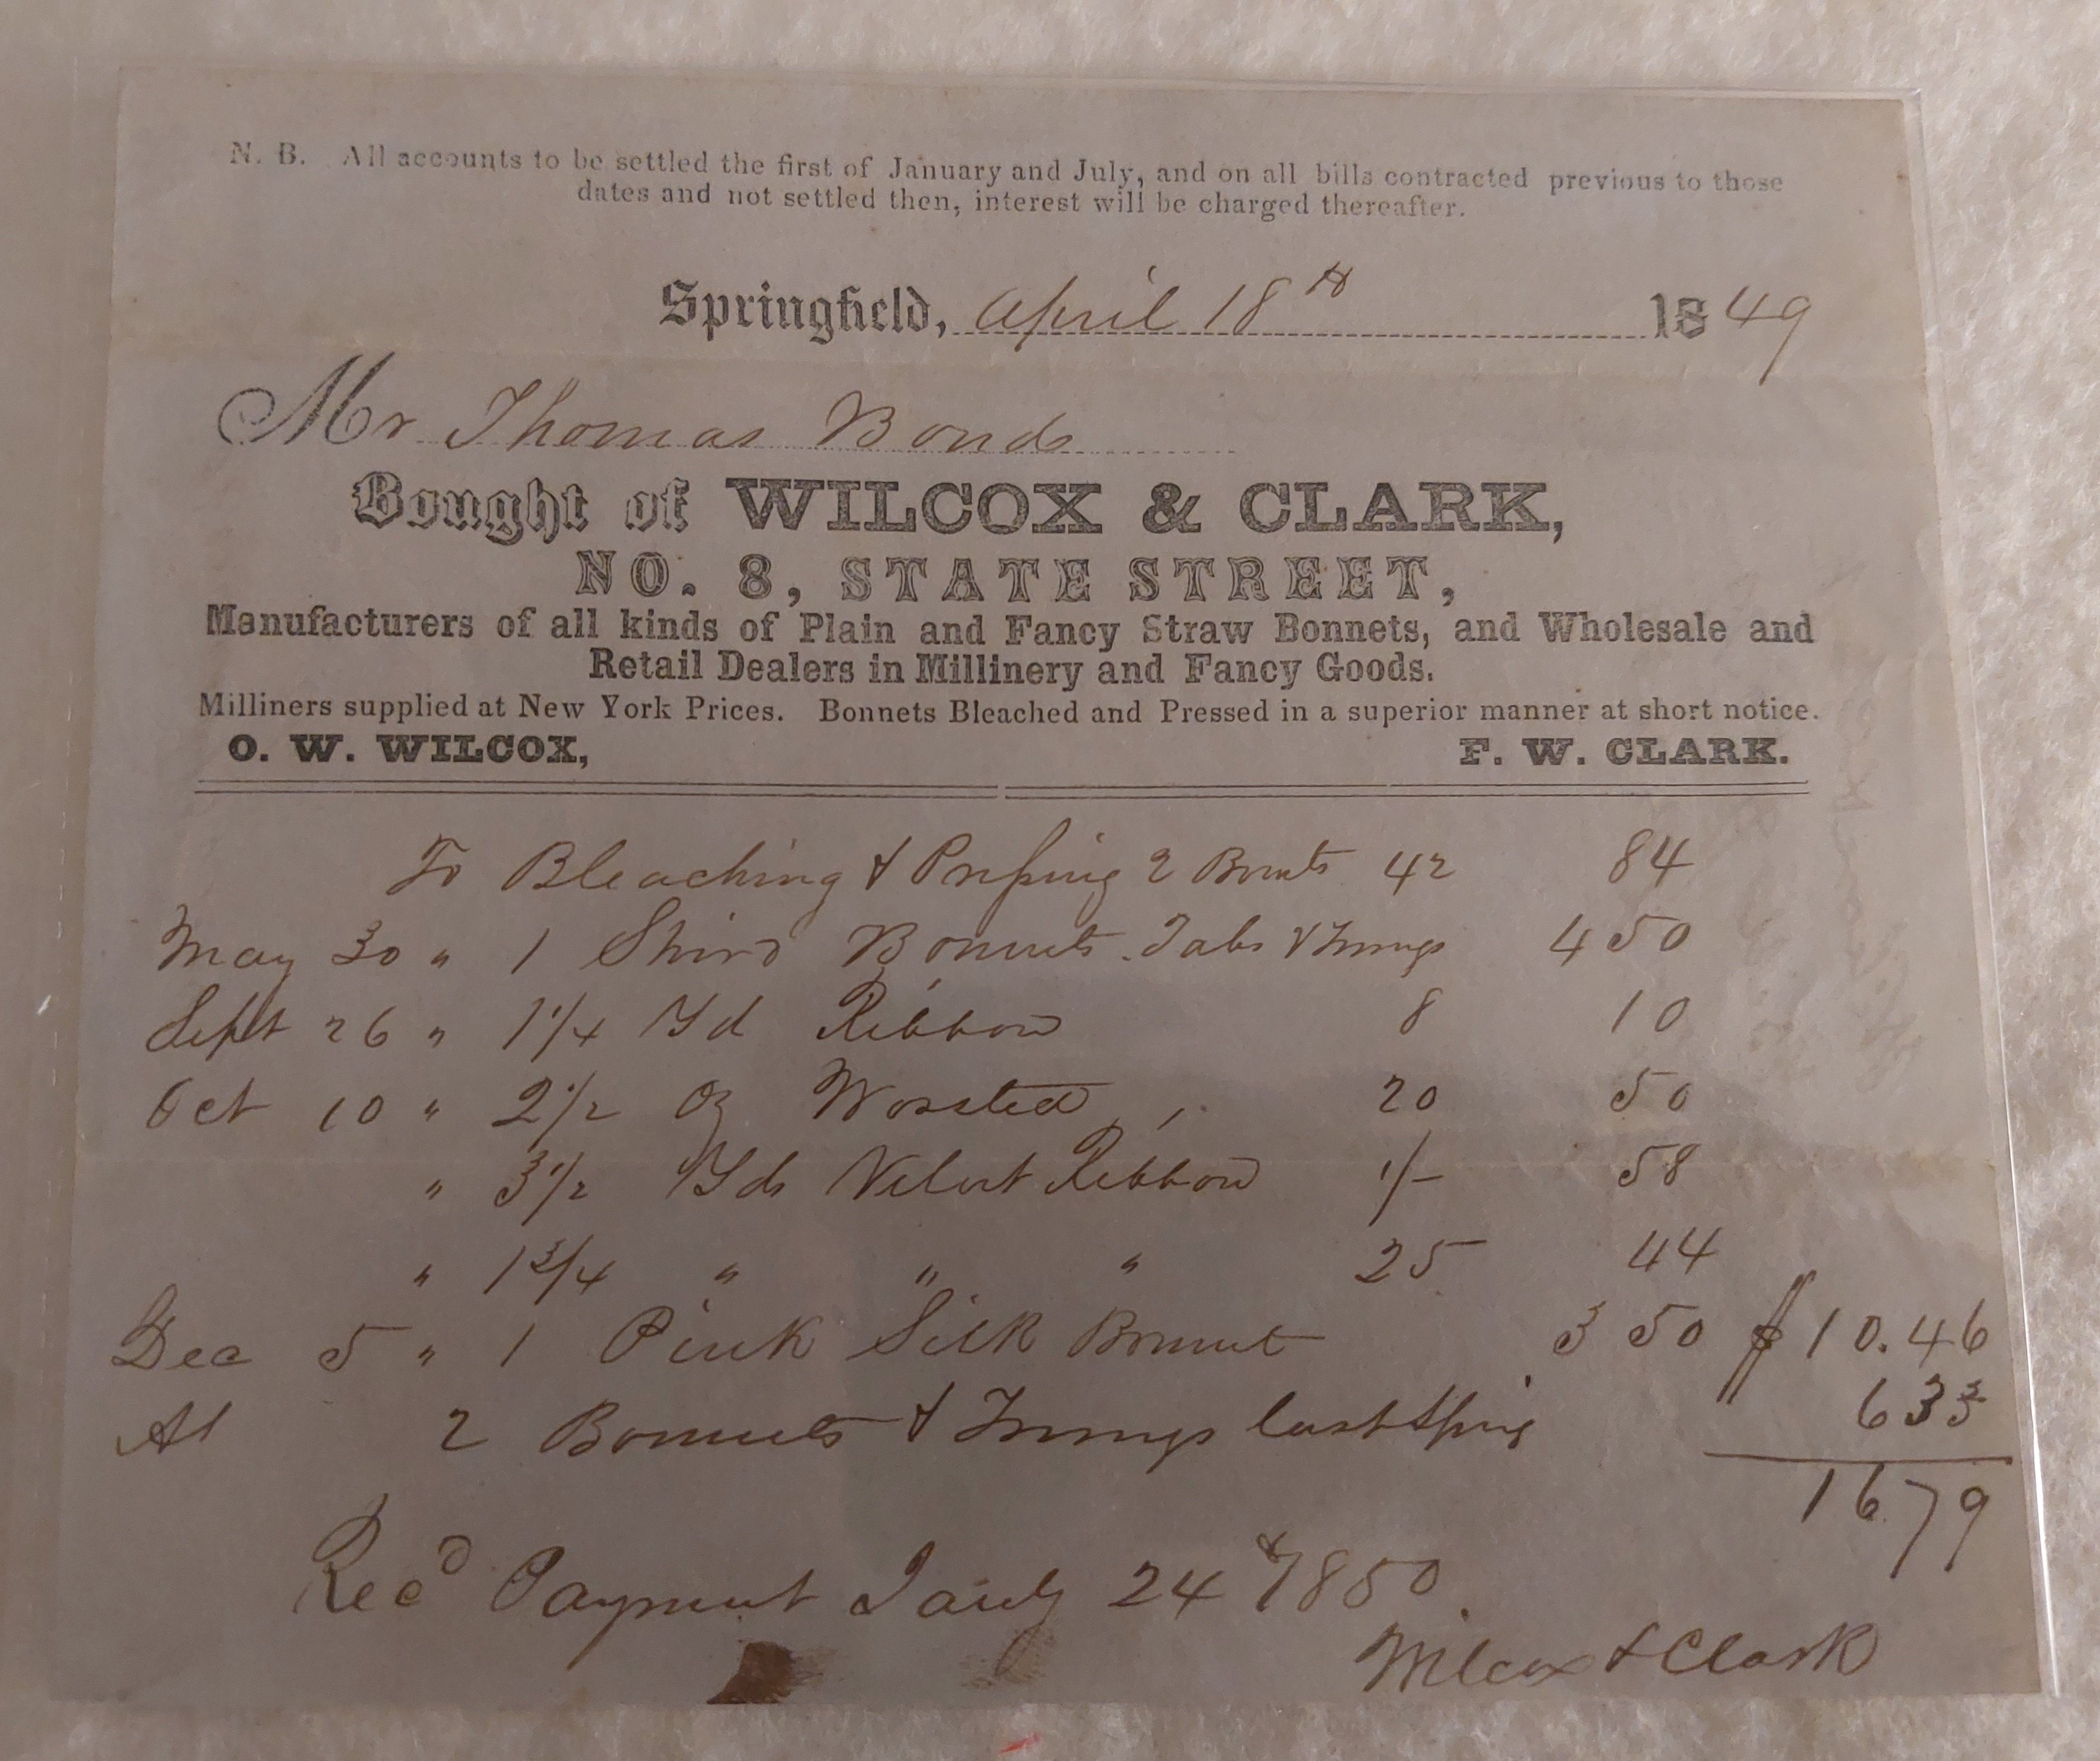 N. B. All accounts to be settled the first of January and July, and on all bills contracted previous to those
dates and not settled then, interest will be charged thereafter.
Springfield, April 18th 1849
Mr Thomas Bonds
Bought of WILCOX & CLARK,
NO. 8, STATE STREET,
Manufacturers of all kinds of Plain and Fancy Straw Bonnets, and Wholesale and
Retail Dealers in Millinery and Fancy Goods.
Milliners supplied at New York Prices. Bonnets Bleached and Pressed in a superior manner at short notice.
O. W. WILCOX, F. W. CLARK.
To Bleaching & Pressing 2 Bonnts 42 84
May 30 " 1 Shird Bonnets Tabs & Trimgs 4 50
Sept 26 " 1 1/4 Yd Ribbon 8 10
Oct 10 " 2 1/2 Oz Worsted 20 50
" 3 1/2 Yds Velvet Ribbon 1/- 58
" 1 3/4 " " " 25 44
Dec 5 " 1 Pink Silk Bonnet 3 50 $10.46
2 Bonnets & Trimgs last Spring 6 33
16 79
Recd Payment Jany 24th 1850
Wilcox & Clark